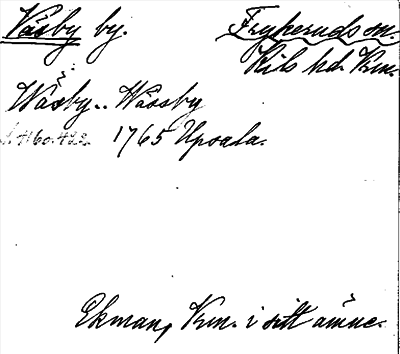 Väsby by. Frykeruds sn.
Kils hd. Krm.
Wäsby.. Wässby
1765 Upsala.
Ekman, Vrm. i sitt ämne.